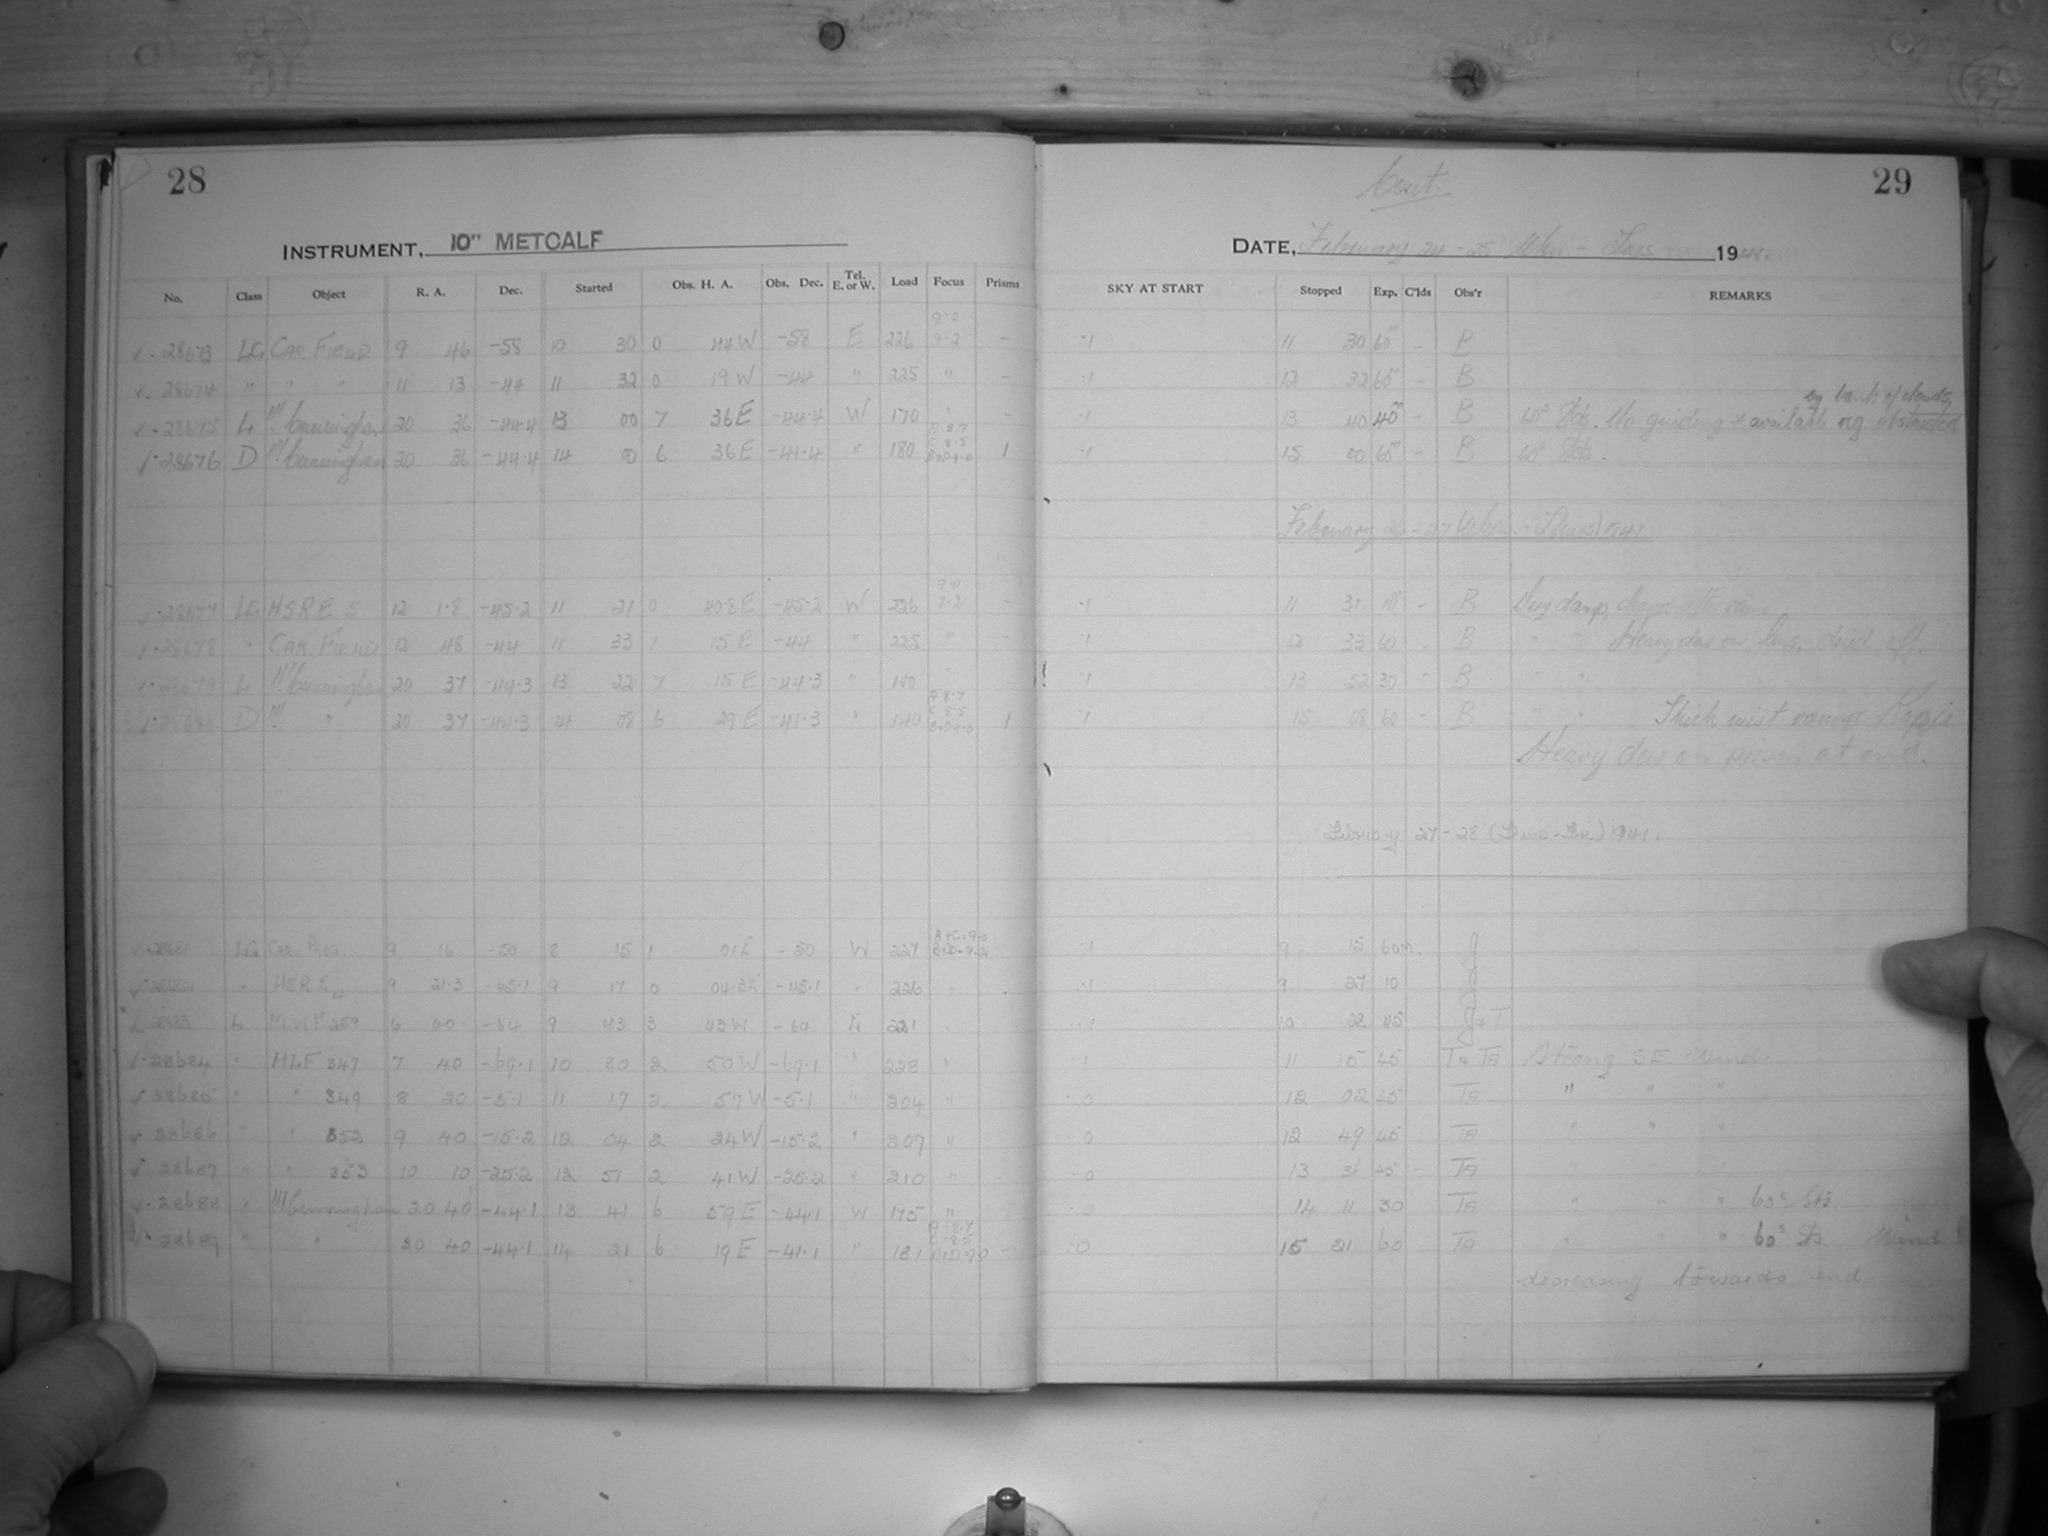 28
INSTRUMENT, 10" METCALF
No. Class Object R. A. Dec. Started Obs. H. A. Obs. Dec. Tel. E. or W. Load Focus Prisms
28673 LG CAR FIELD 9 46 -58 10 30 0 44 W -58 E 226 9.0 9.2 -
28674 " " " 11 13 -44 11 32 0 19 W -44 " 225 " -
28675 L !!! Cunningham 20 36 -44.4 13 00 7 36 E -44.4 W 170 " -
28676 D !!! Cunningham 20 36 -44.4 14 00 6 36 E -41.4 " 180 A 8.7 C 8.5 B+D 9.0 1
28677 LG HSRE 5 12 1.8 -45.2 11 21 0 40.8 E -45.2 W 226 9.0 9.2 -
28678 " CAR FIELD 12 48 -44 11 33 1 15 E -44 " 225 " -
28679 L !!! Cunningham 20 37 -44.3 13 22 7 15 E -44.3 " 100 "
D !!! " 20 37 -44.3 14 08 6 29 E -41.3 " A 8.7 B+D 9.0 1
28681 LG Car 9 16 -50 8 15 1 01 E -50 W 227 A+C-9.0 B+D-9.2
" 9 21.3 -45.1 9 17 0 -45.1 " 226 "
28683 L 6 00 -64 9 43 3 43 W -64 E 221
28684 " HLF 347 7 40 -69.1 10 30 2 50 W -69.1 " 228 "
28685 " " 349 8 20 -5.1 11 17 2 57 W -5.1 " 204 "
28686 " " 352 9 40 -15.2 12 04 2 24 W -15.2 " 207 "
28687 " " 353 10 10 -25.2 12 51 2 41 W -25.2 " 210 "
28688 " !!! Cunningham 20 40 -44.1 13 41 6 59 E -44.1 W 175 "
28689 " " 20 40 -44.1 14 21 6 19 E -41.1 " 181 A 8.7 C 8.5 B+D 9.0 -
29
Cont.
DATE, February 24-25 Mon - Tues 1941
SKY AT START Stopped Exp. C'lds Obs'r REMARKS
.1 11 30 60m - B
.1 12 32 60m - B
by bank of clouds,
.1 13 40 40m - B 60s Sts. No guiding * available org obstructed
.1 15 00 60m - B 60s Sts.
February 26-27 1941
.1 11 31 10m - B Very damp,
.1 12 33 60 - B " " Heavy dew on lens, dried off.
.1 13 52 30 - B " "
.1 15 08 60 - B " " Thick mist
Heavy dew on prism at end.
February 27-28 (Thurs-Fri) 1941.
.1 9 15 60m. J
.1 9 27 10 J
.1 10 28 45 J+T
.1 11 15 45 T+TA Strong SE Wind.
.0 12 02 45 TA " " "
.0 12 49 45 TA " " "
.0 13 36 45 - TA " "
.0 14 11 30 TA " " " 60s Sts.
.0 15 21 60 TA " " " 60s Sts. Wind
decreasing towards end